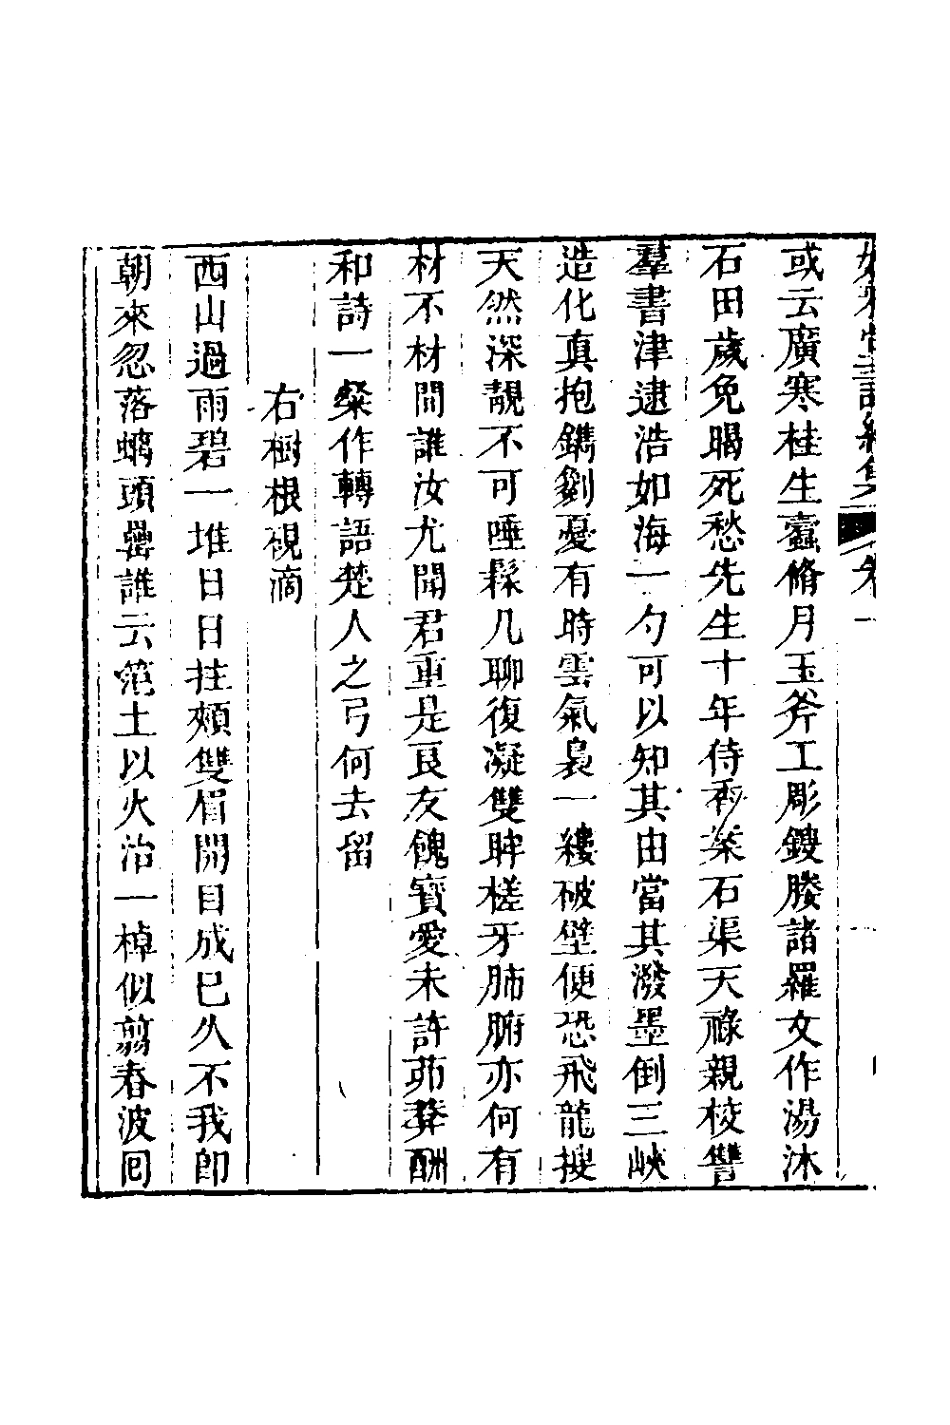 或云廣寒桂生蠹脩月玉斧工彫鎪賸諸羅文作湯沐
石田歲免暍死愁先生十年侍香案石渠天祿親校讐
羣書津逮浩如海一勺可以知其由當其潑墨倒三峽
造化真抱鐫劉憂有時雲氣裊一縷破壁便恐飛龍搜
天然深靚不可唾髹几聊復凝雙眸槎牙肺腑亦何有
材不材間誰汝尤聞君重是良友餽寶愛未許茆𦫼酬
和詩一粲作轉語楚人之弓何去留
右樹根硯滴
西山過雨碧一堆日日拄頰雙眉開目成已久不我卽
朝來忽落螭頭罍誰云范土以火治一棹似剪春波囘